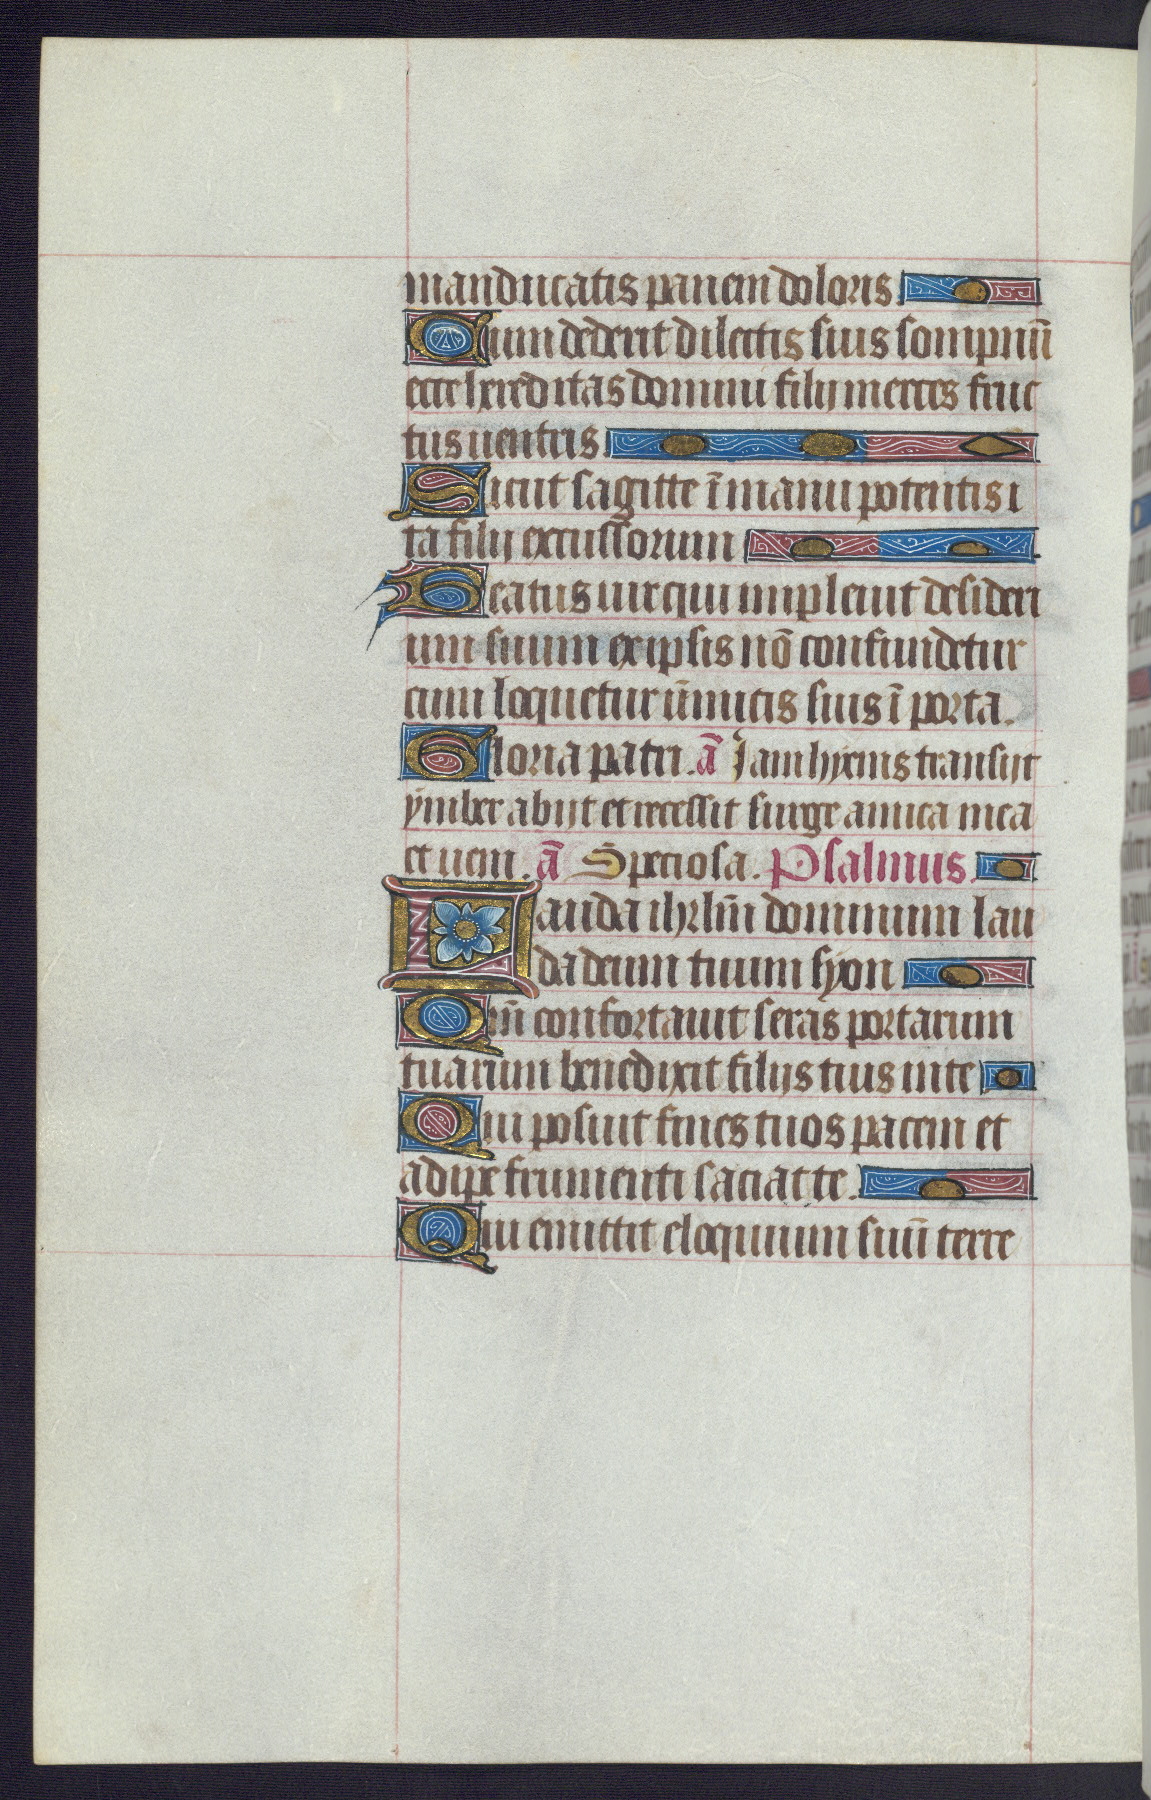 manducatis panem doloris.
Cum dederit dilectis suis sompnū
ecce hereditas domini filij merces fruc
tus uentris.
Sicut sagitte ī manu potentis i
ta filij excussorum
Beatus uir qui impleuit desideri
um suum ex ipsis nō confundetur
cum loquetur īnimicis suis ī porta.
Gloria patri. ā Jam hyems transijt
ymber abijt et recessit surge amica mea
et ueni. ā Speciosa. Psalmus.
Lauda ihrlm̄ dominum lau
da deum tuum syon
Qm̄ confortauit seras portarum
tuarum benedixit filijs tuis in te
Qui posuit fines tuos pacem et
adipe frumenti saciat te.
Qui emittit eloquium suū terre